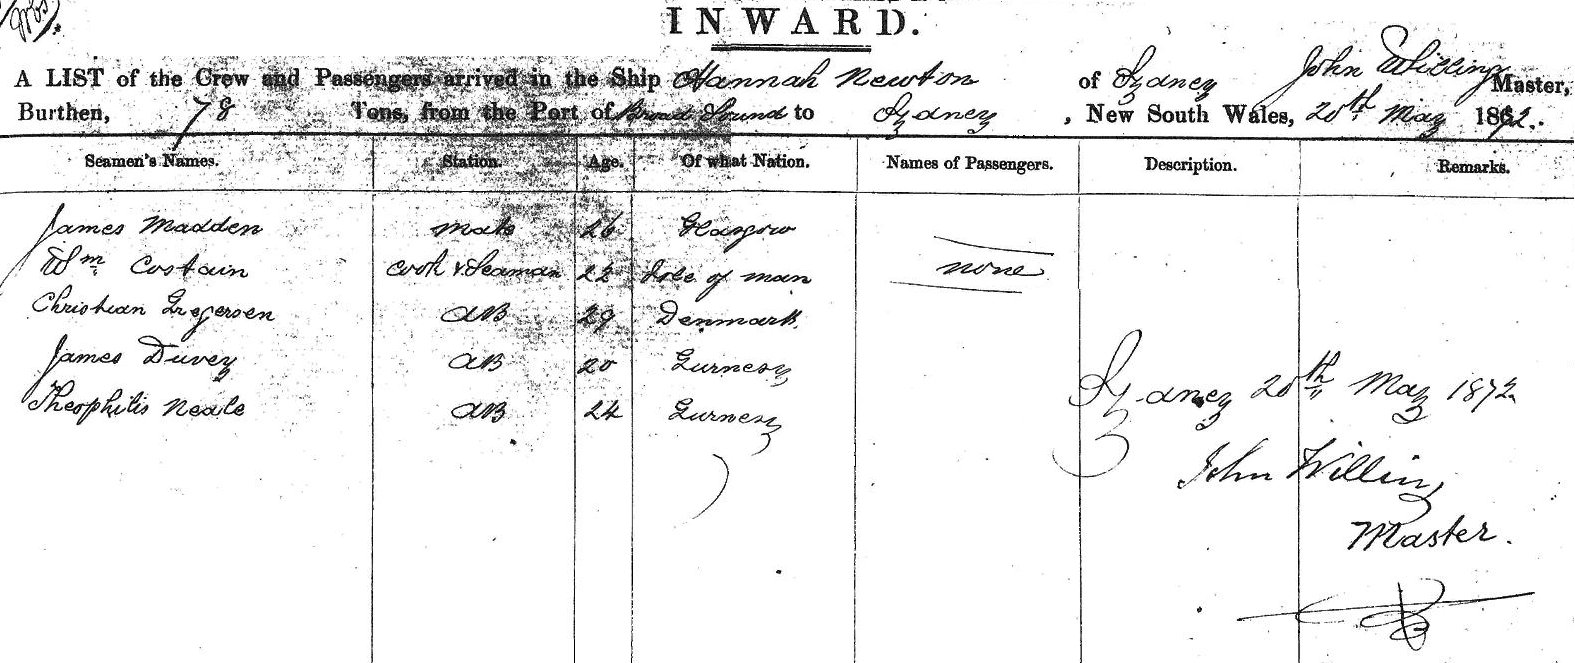 INWARD.
A LIST of the Crew and Passengers arrived in the Ship Hannah Newton of Sydney John Willing Master,
Burthen, 78 Tons, from the Port of Broad Sound to Sydney, New South Wales, 20th May 1872.
Seamen's Names. Station. Age. Of what Nation. Names of Passengers. Description. Remarks.
James Madden Mate 26 Glasgow
Wm Costain Cook & Seaman 22 Isle of man none
Christian Gregersen AB 29 Denmark
James Duvey AB 20 Gurnesy
Theophilis Neale AB 24 Gurnesy
Sydney 20th May 1872
John Willing
Master.